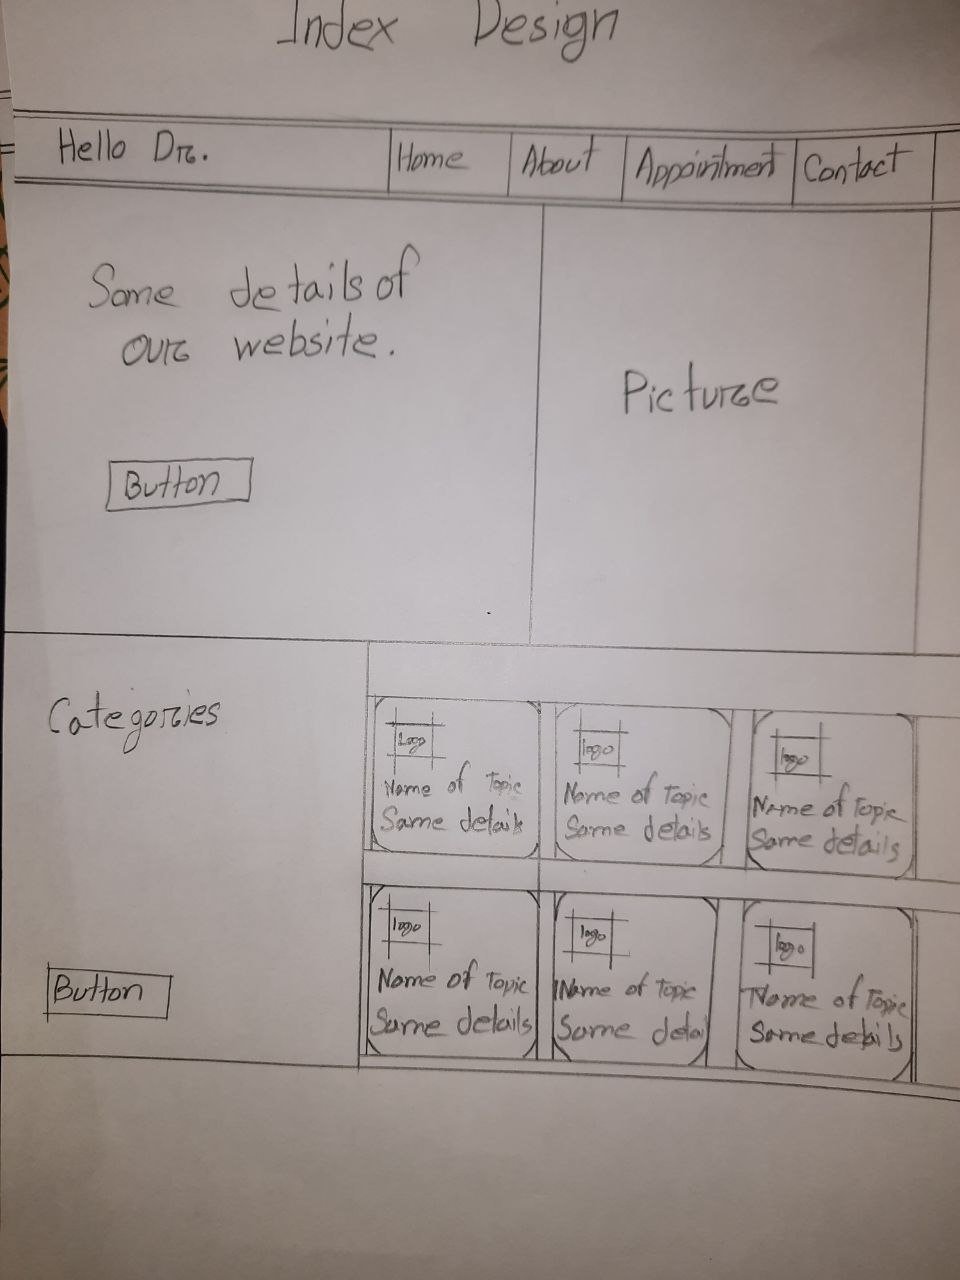 Index Design
Hello Dr.
Home
About
Appointment
Contact
Some details of
our website.
Button
Picture
Categories
Button
Logo
Name of Topic
Some details
logo
Name of Topic
Some details
logo
Name of Topic
Some details
logo
Name of Topic
Some details
logo
Name of Topic
Some detai
logo
Name of Topic
Some details